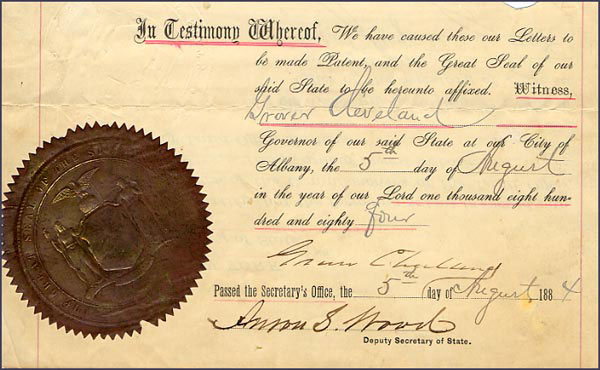 In Testimony Whereof, We have caused these our Letters to
be made Patent, and the Great Seal of our
said State to be hereunto affixed. Witness,
Grover Cleveland
Governor of our said State at our City of
Albany, the 5th day of August
in the year of our Lord one thousand eight hun-
dred and eighty four
Grover Cleveland
Passed the Secretary's Office, the 5th day of August 1884
Anson S. Wood
Deputy Secretary of State.